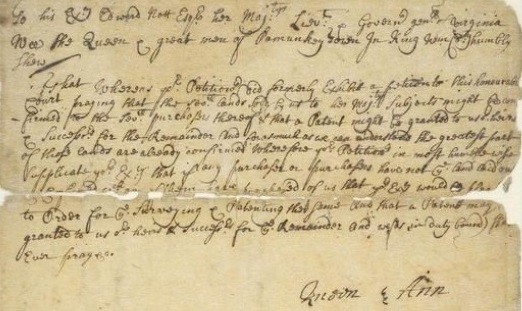 To his Ex:cy Edward Nott Esq:r her Maj:ties Lieu:t & Govern:r gen:ll of Virginia
Wee the Queen & great men of Pamunkey Town In King W:m C:ty humbly
Shew
That Whereas y:r Petition:rs did formerly Exhibit a petition to this honourable
Court praying that the Sev:ll Lands sold by us to her Maj:ties Subjects might be con-
firmed to the Sev:ll purchasers thereof & that a Patent might be granted to us o:r heirs
& Success:rs for the Remainder And forasmuch as we can understand the greatest part
of those Lands are already confirmed Wherefore y:r Petition:rs in most humble wise
Supplicate yo:r Ex:cy that if any purchaser or purchasers have not
purchased of us that yo:r Ex:cy would be
to Order for y:e Surveying & Patenting the same And that a Patent may
granted to us o:r heirs & Success:rs for y:e Remainder And wee as in duty bound
Ever pray &c.
Queen & Ann